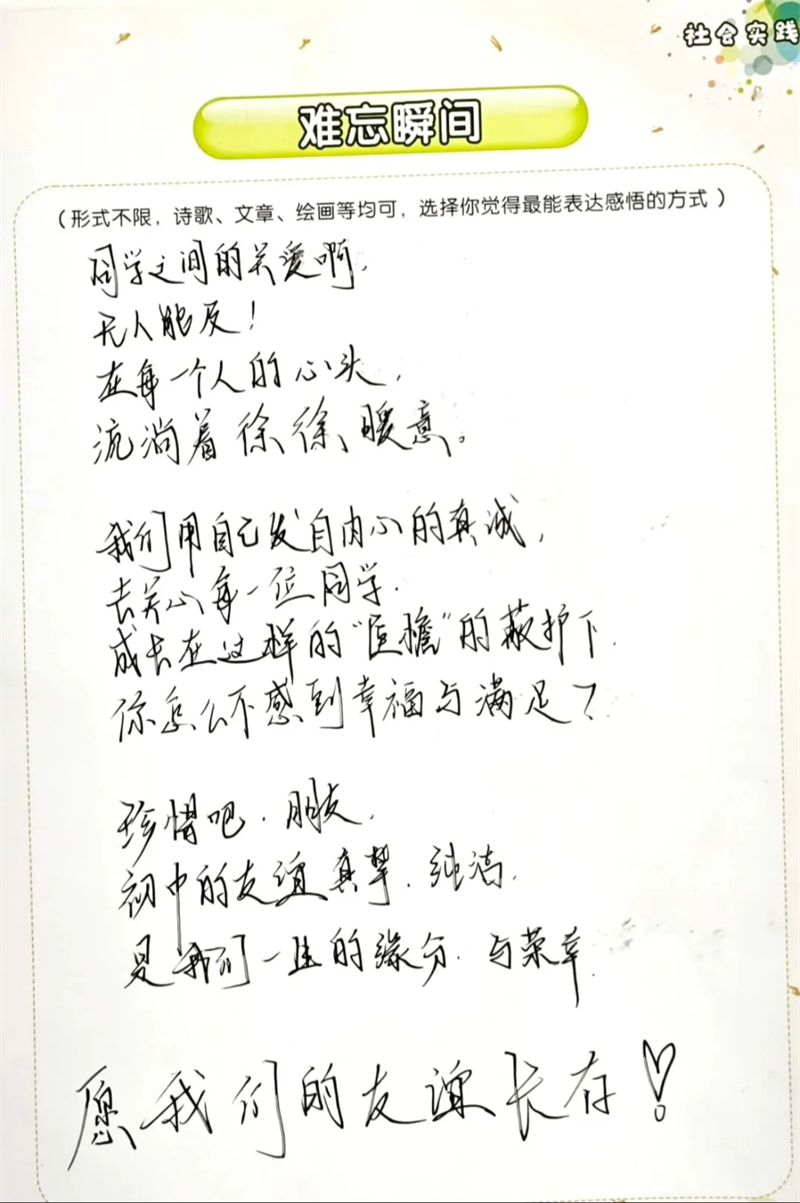 社会实践
难忘瞬间
(形式不限，诗歌、文章、绘画等均可，选择你觉得最能表达感悟的方式)
同学之间的关爱啊，
无人能及！
在每一个人的心头，
流淌着徐徐暖意。
我们用自己发自内心的真诚，
去关心每一位同学.
成长在这样的“巨檐”的蔽护下.
你怎么不感到幸福与满足？
珍惜吧.朋友.
初中的友谊真挚.纯洁.
是我们一生的缘分.与荣幸.
愿我们的友谊长存！